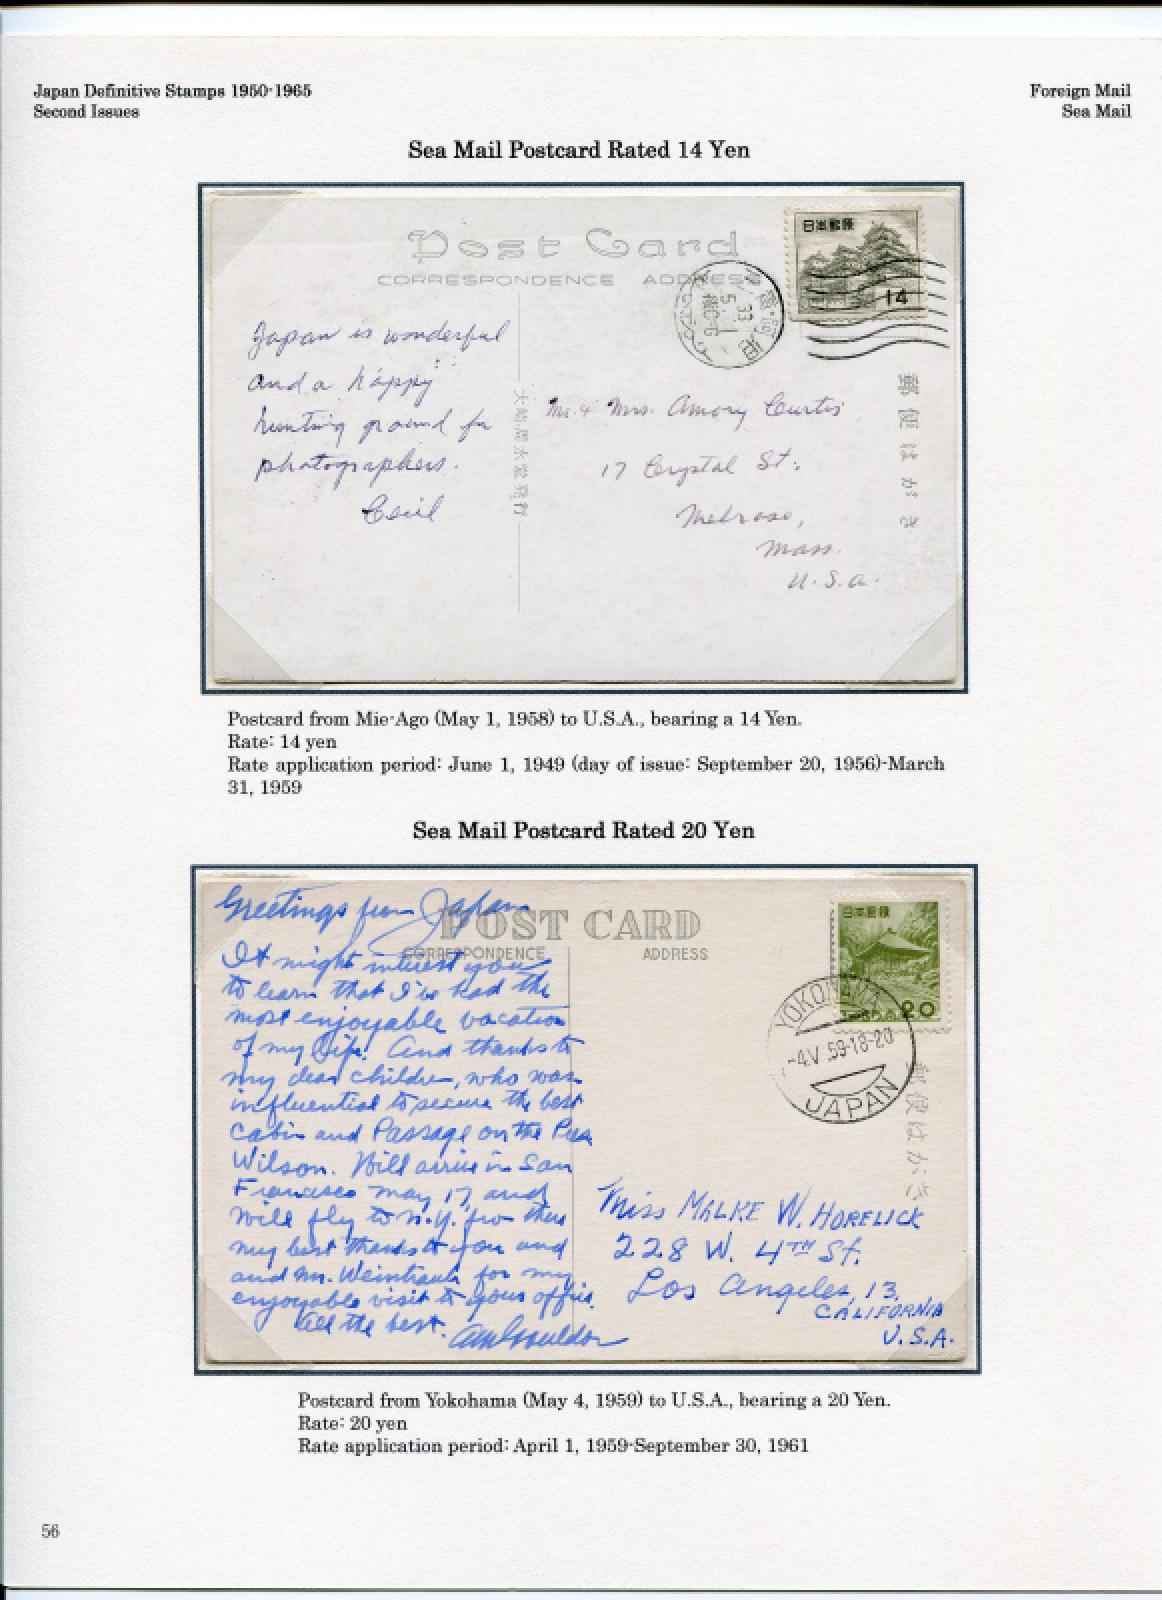 Japan Definitive Stamps 1950-1965
Second Issues
Foreign Mail
Sea Mail
Sea Mail Postcard Rated 14 Yen
Post Card
CORRESPONDENCE ADDRESS
日本郵便
14
33
5. 1
郵便はがき
Japan is wonderful
and a happy
hunting ground for
photographers.
Cecil
Mr. & Mrs. Amory Curtis
17 Crystal St.
Melrose,
Mass.
U.S.A.
Postcard from Mie-Ago (May 1, 1958) to U.S.A., bearing a 14 Yen.
Rate: 14 yen
Rate application period: June 1, 1949 (day of issue: September 20, 1956)-March
31, 1959
Sea Mail Postcard Rated 20 Yen
POST CARD
CORRESPONDENCE ADDRESS
日本郵便
20
YOKOHAMA
-4.V.59-18-20
JAPAN
郵便はがき
Greetings from Japan
It might interest you
to learn that I've had the
most enjoyable vacation
of my life. And thanks to
my dear children, who was
influential to secure the best
cabin and Passage on the Pres
Wilson. Will arrive in San
Francisco may 17, and
will fly to N.Y. from there
my best thanks to you and
and Mr. Weintraub for my
enjoyable visit to your office.
all the best.
Miss MALKE W. HORELICK
228 W. 4TH St.
Los Angeles, 13.
CALIFORNIA
U.S.A.
Postcard from Yokohama (May 4, 1959) to U.S.A., bearing a 20 Yen.
Rate: 20 yen
Rate application period: April 1, 1959-September 30, 1961
56